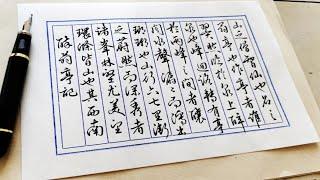 醉翁亭記
環滁皆山也其西南
諸峯林壑尤美望
之蔚然而深秀者
琅琊也山行六七里漸
聞水聲潺潺而瀉出
於兩峰之間者釀
泉也峰回路轉有亭
翼然臨於泉上者醉
翁亭也作亭者誰
山之僧智仙也名之